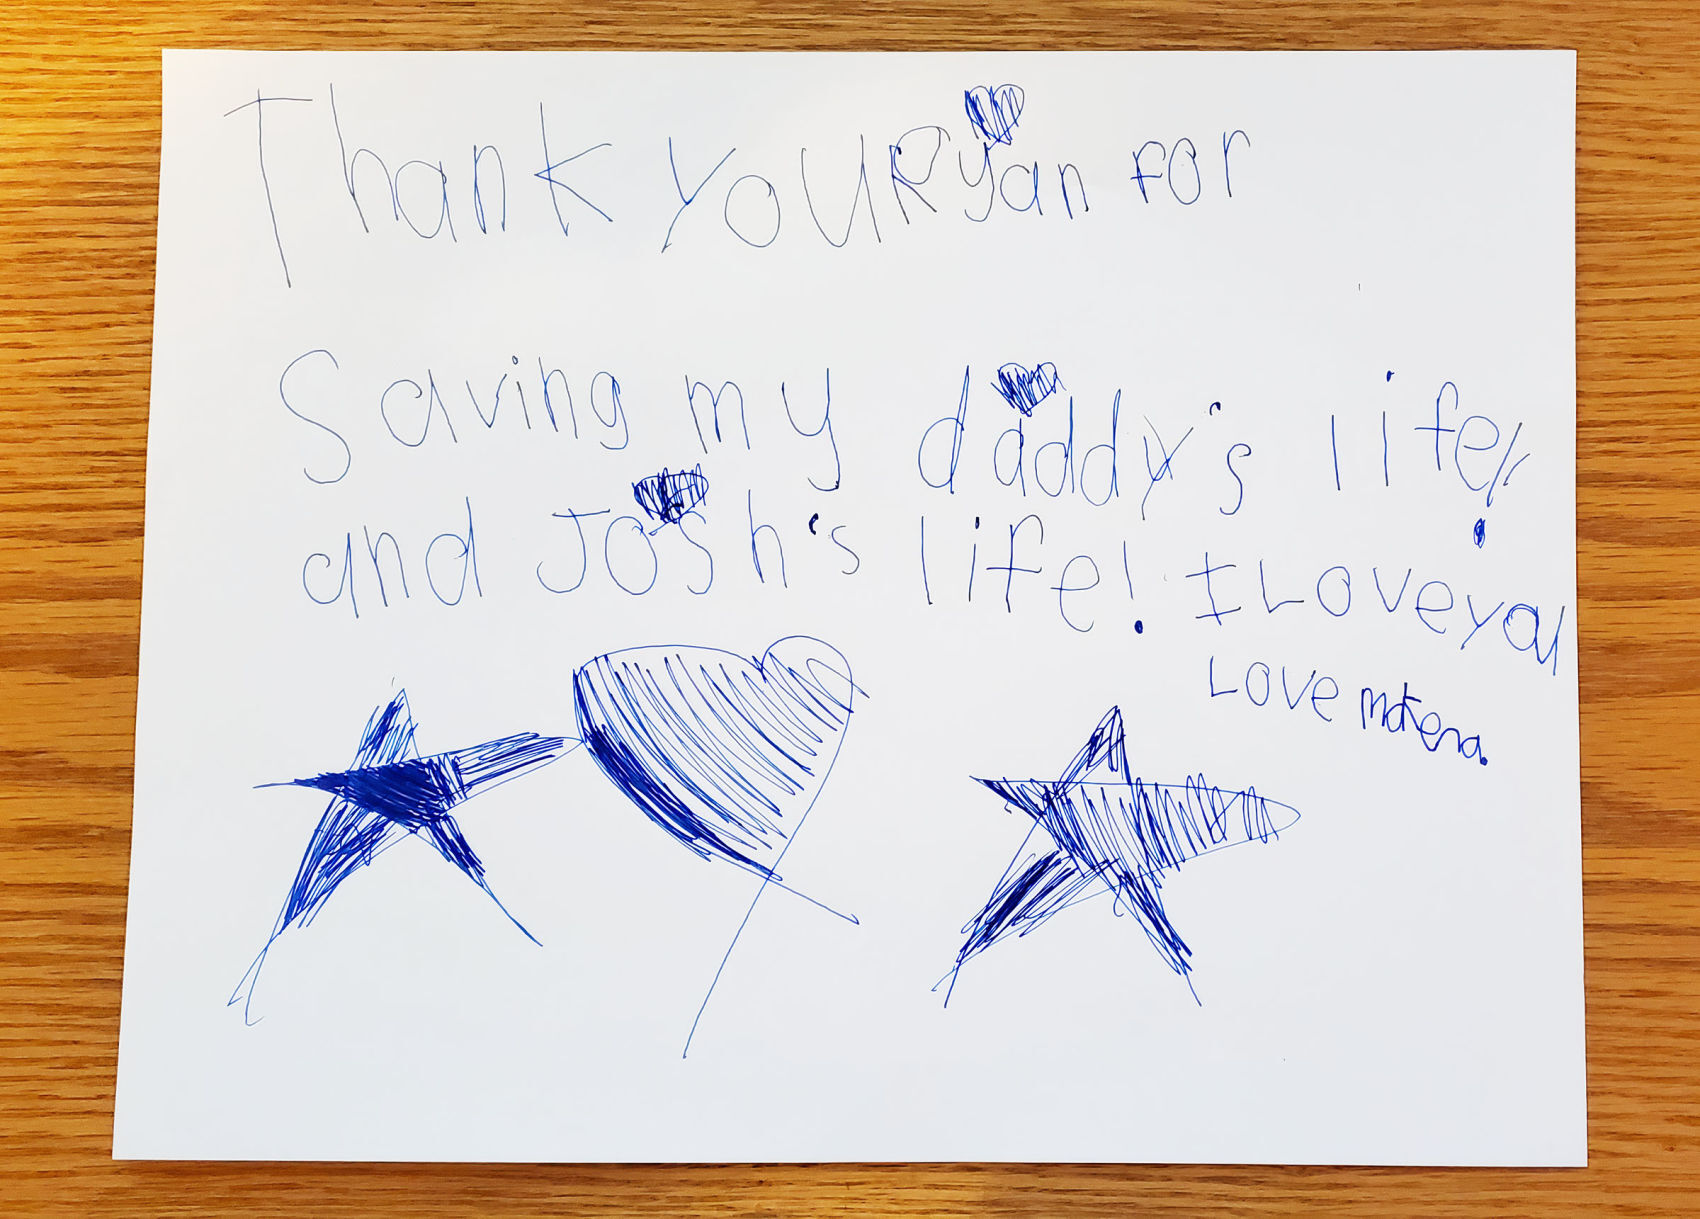 Thank you Ryan For
Saving my daddy's life!
and Josh's life! I Love you
Love makena